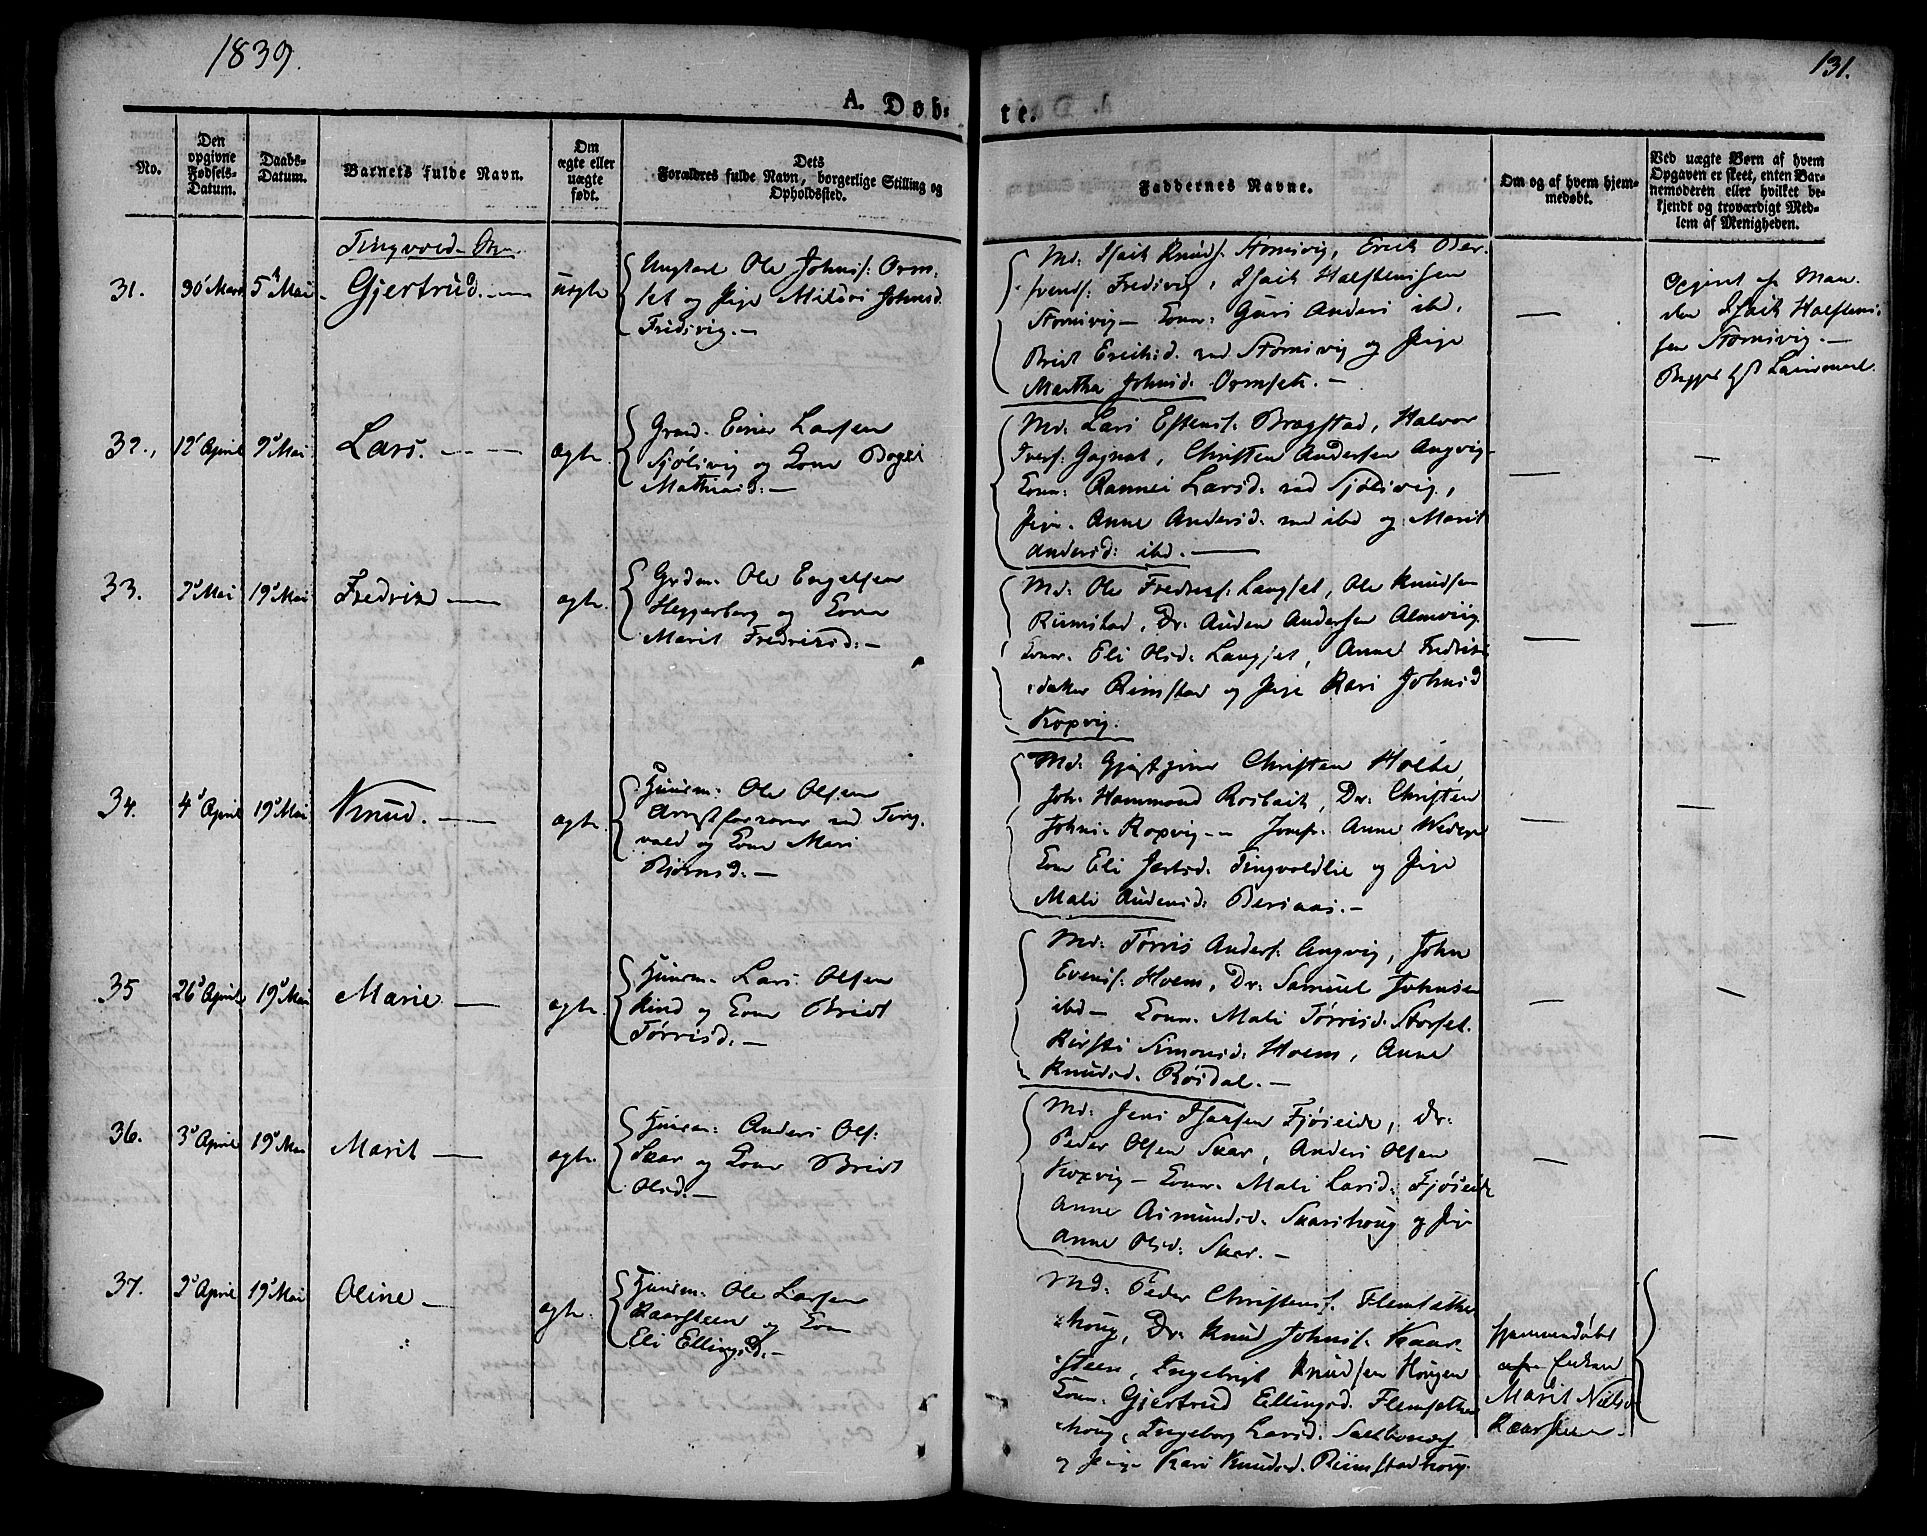 1839.
131.
A. Døb-
te.
No.
Den opgivne Fødsels-Datum.
Daabs-Datum.
Barnets fulde Navn.
Om ægte eller uægte født.
Dets Forældres fulde Navn, borgerlige Stilling og Opholdssted.
Faddernes Navne.
Om og af hvem hjem-medøbt.
Ved uægte Børn af hvem Opgaven er skeet, enten Bar-nemoderen eller hvilket be-kjendt og troværdigt Med-lem af Menigheden.
Tingvold
31.
30 Mart
5 Mai
Gjertrud.
uægte
Ungkarl Ole Johns: Orm-
set og Pige Mildri Johnsd.
Fredsvig.
Md. Isaik Knuds: Stornsvig, Erik Ver-
Fredsvig, Isaik Halstensen
Stornsvig - Konr: Guri Anders ibd,
Brit Eriksd. ved Stornsvig og Pige
Martha Johnsd. Ormset.
Opgivet af Man-
den Isaik Halstens-
sen Stornsvig.
32.
12 April
9 Mai
Lars.
ægte
Grmd. Einer Larsen
Sjølsvig og Kone
Mathiasd.
Md. Lars Estens: Bragstad, Halvor
Ivers: Gagnat, Christen Andersen Angvig
Konr: Rannei Larsd. ved Sjølsvig,
Pige. Anne Andersd. ved ibd og Marit
Andersd: ibd.
33.
19 Mai
Fredrik
ægte
Grdm. Ole Engelsen
Heggerberg og Kone
Marit Fredriksd:
Md: Ole Fredriks: Langset, Ole Knudsen
Rimstad, Dr. Auden Andersen Almvig
Konr. Eli Olsd. Langset, Anne Fredriks
datter Rimstad og Pige Kari Johnsd
Kopvig.
34.
4 April
19 Mai
Knud.
ægte
Huusm: Ole Olsen
Arrestforvarer ved Ting-
vold og Kone Mari
Bjørnsd.
Md: Gjestgiver Christen Holte,
Joh: Hammond Rosbach, Dr: Christen
Johns: Kopvig - Jomfr. Anne Wedege
Kone Eli Tingvoldlie og Pige
Mali Audensd: Bersaas.
35
26 April
19 Mai
Marie
ægte
Huusm: Lars Olsen
Rind og Kone Brit
Tørrisd.
Md: Tørris Anders: Angvig, John
Evens: Hoem, Dr: Samuel Johnsen
ibd - Konr. Mali Tørrisd. Storset
Kirsti Simonsd. Hoem, Anne
Knudsd. Røsdal.
36.
3 April
19 Mai
Marit
ægte
Huusm: Anders Ols:
Skar og Kone Brit
Olsd.
Md: Jens Fjøseide, Dr:
Peder Olsen Skar, Anders Olsen
Kopvig - Konr. Mali Larsd: Fjøseide
Anne Asmundsd. Skarshoug og Pige
Anne Olsd: Skar.
37.
2 April
19 Mai
Oline
ægte
Huusm. Ole Larsen
Kaarsteen og Kone
Eli Ellingsd.
Md. Peder Christens: Flemsæther
houg, Dr. Knud Johns: Kaar-
steen, Ingebrigt Knudsen Hougen
Konr. Gjertrud Ellingsd. Flemsæther
houg, Ingeborg Larsd.
og Pige Kari Knudsd. Rimstadhoug.
hjemmedøbt
af Enken
Marit Nilsd
Kaarsteen